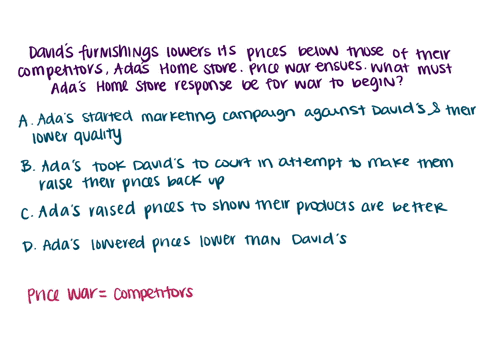 David's furnishings lowers its prices below those of their
competitors, Ada's Home Store. Price war ensues. What must
Ada's Home Store response be for war to begin?
A. Ada's started marketing campaign against David's & their
lower quality
B. Ada's took David's to court in attempt to make them
raise their prices back up
C. Ada's raised prices to show their products are better
D. Ada's lowered prices lower than David's
Price War = Competitors